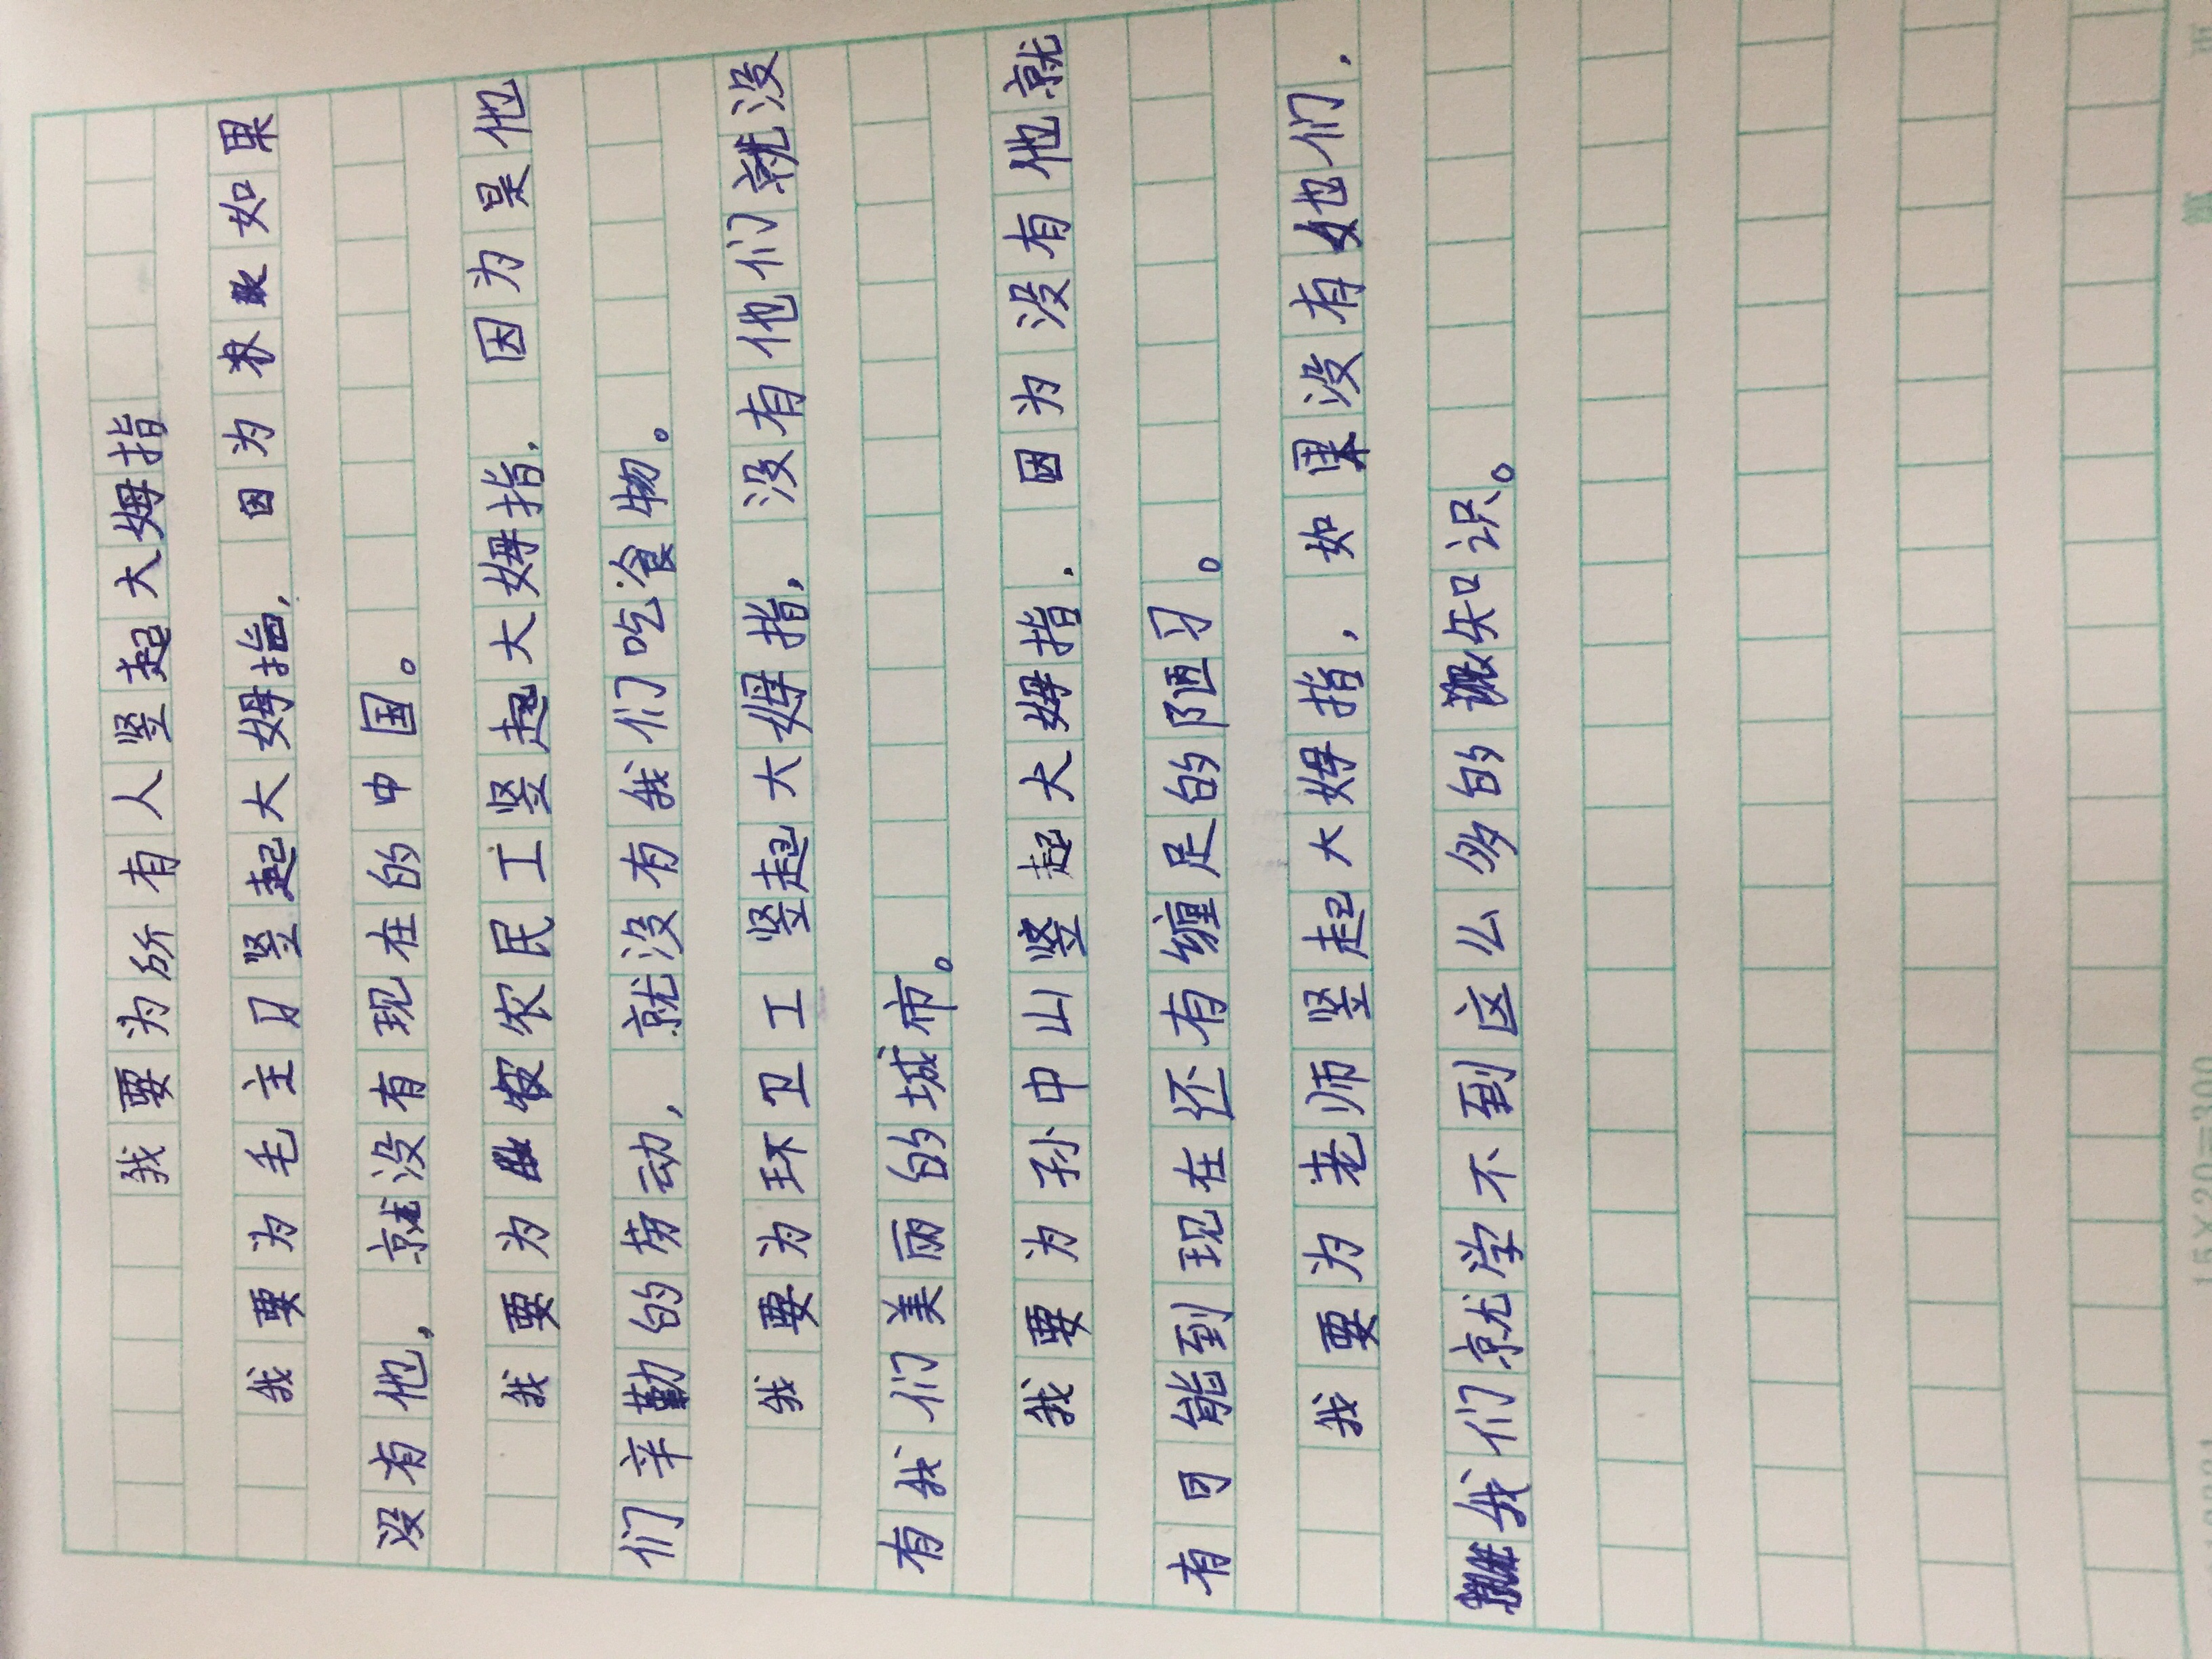 我要为所有人竖起大姆指
我要为毛主习竖起大姆指，因为如果
没有他，就没有现在的中国。
我要为农民工竖起大姆指，因为是他
们辛勤的劳动，就没有我们吃食物。
我要为环卫工竖起大姆指，没有他们就没
有我们美丽的城市。
我要为孙中山竖起大姆指，因为没有他就
有可能到现在还有缠足的陋习。
我要为老师竖起大姆指，如果没有她们，
我们就学不到这么多的知识。
15×20=300